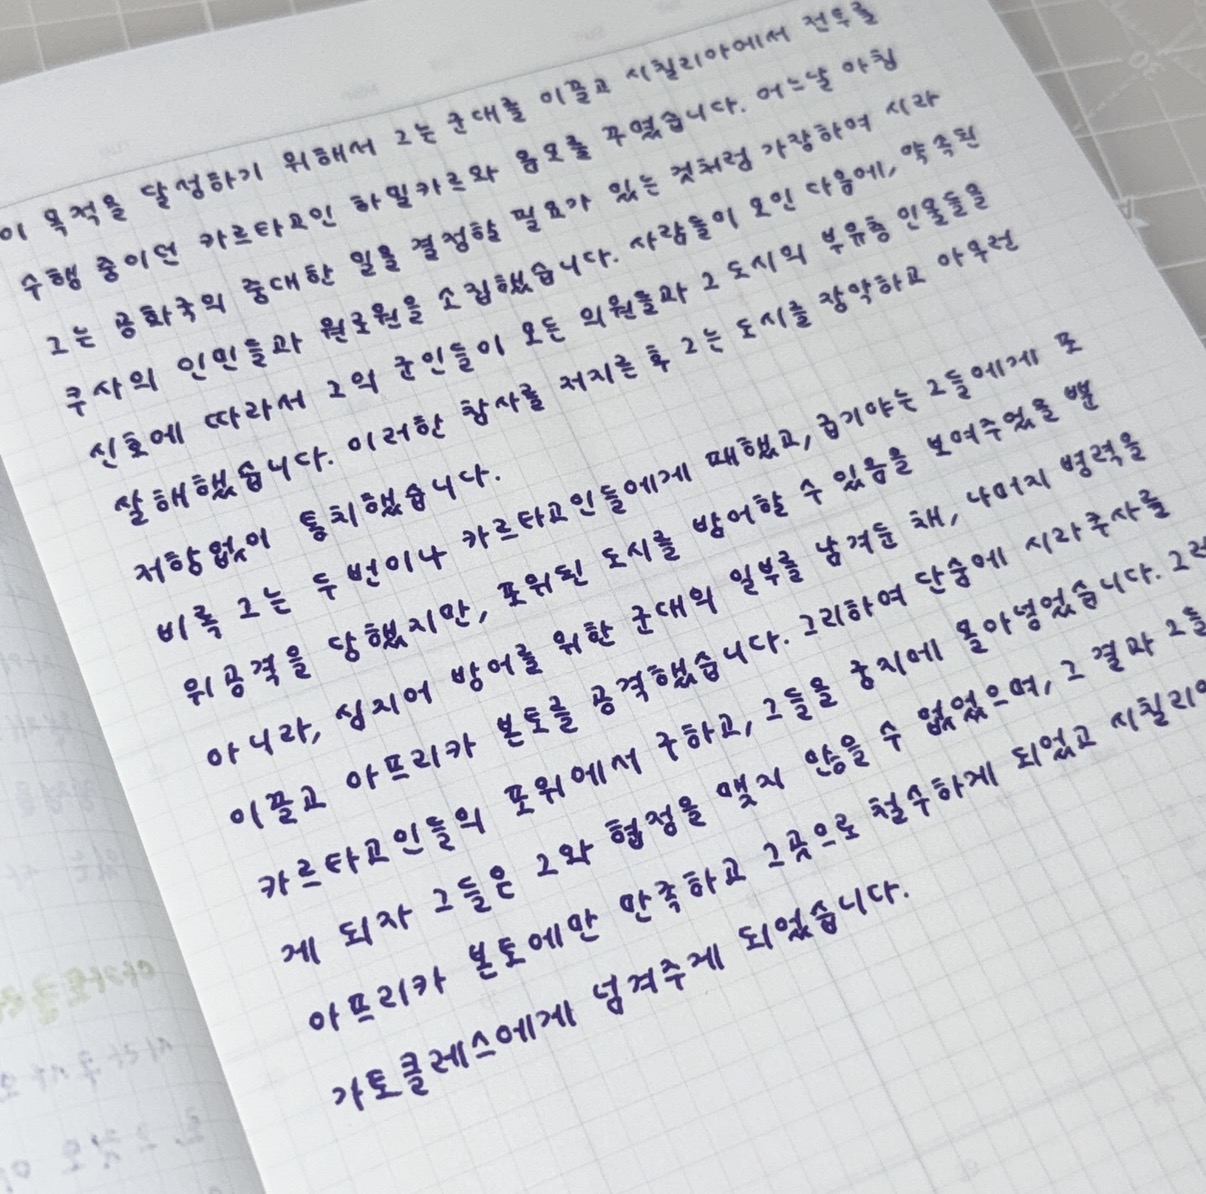 이 목적을 달성하기 위해서 그는 군대를 이끌고 시칠리아에서 전투를
수행 중이던 카르타고인 하밀카르와 음모를 꾸몄습니다. 어느날 아침
그는 공화국의 중대한 일을 결정할 필요가 있는 것처럼 가장하여 시라
쿠사의 인민들과 원로원을 소집했습니다. 사람들이 모인 다음에, 약속된
신호에 따라서 그의 군인들이 모든 의원들과 그 도시의 부유층 인물들을
살해했습니다. 이러한 참사를 저지른 후 그는 도시를 장악하고 아무런
저항없이 통치했습니다.
비록 그는 두 번이나 카르타고인들에게 패했고, 급기야는 그들에게 포
위공격을 당했지만, 포위된 도시를 방어할 수 있음을 보여주었을 뿐
아니라, 심지어 방어를 위한 군대의 일부를 남겨둔 채, 나머지 병력을
이끌고 아프리카 본토를 공격했습니다. 그리하여 단숨에 시라쿠사를
카르타고인들의 포위에서 구하고, 그들을 궁지에 몰아넣었습니다. 그렇
게 되자 그들은 그와 협정을 맺지 않을 수 없었으며, 그 결과 그들
아프리카 본토에만 만족하고 그곳으로 철수하게 되었고 시칠리아
가토클레스에게 넘겨주게 되었습니다.